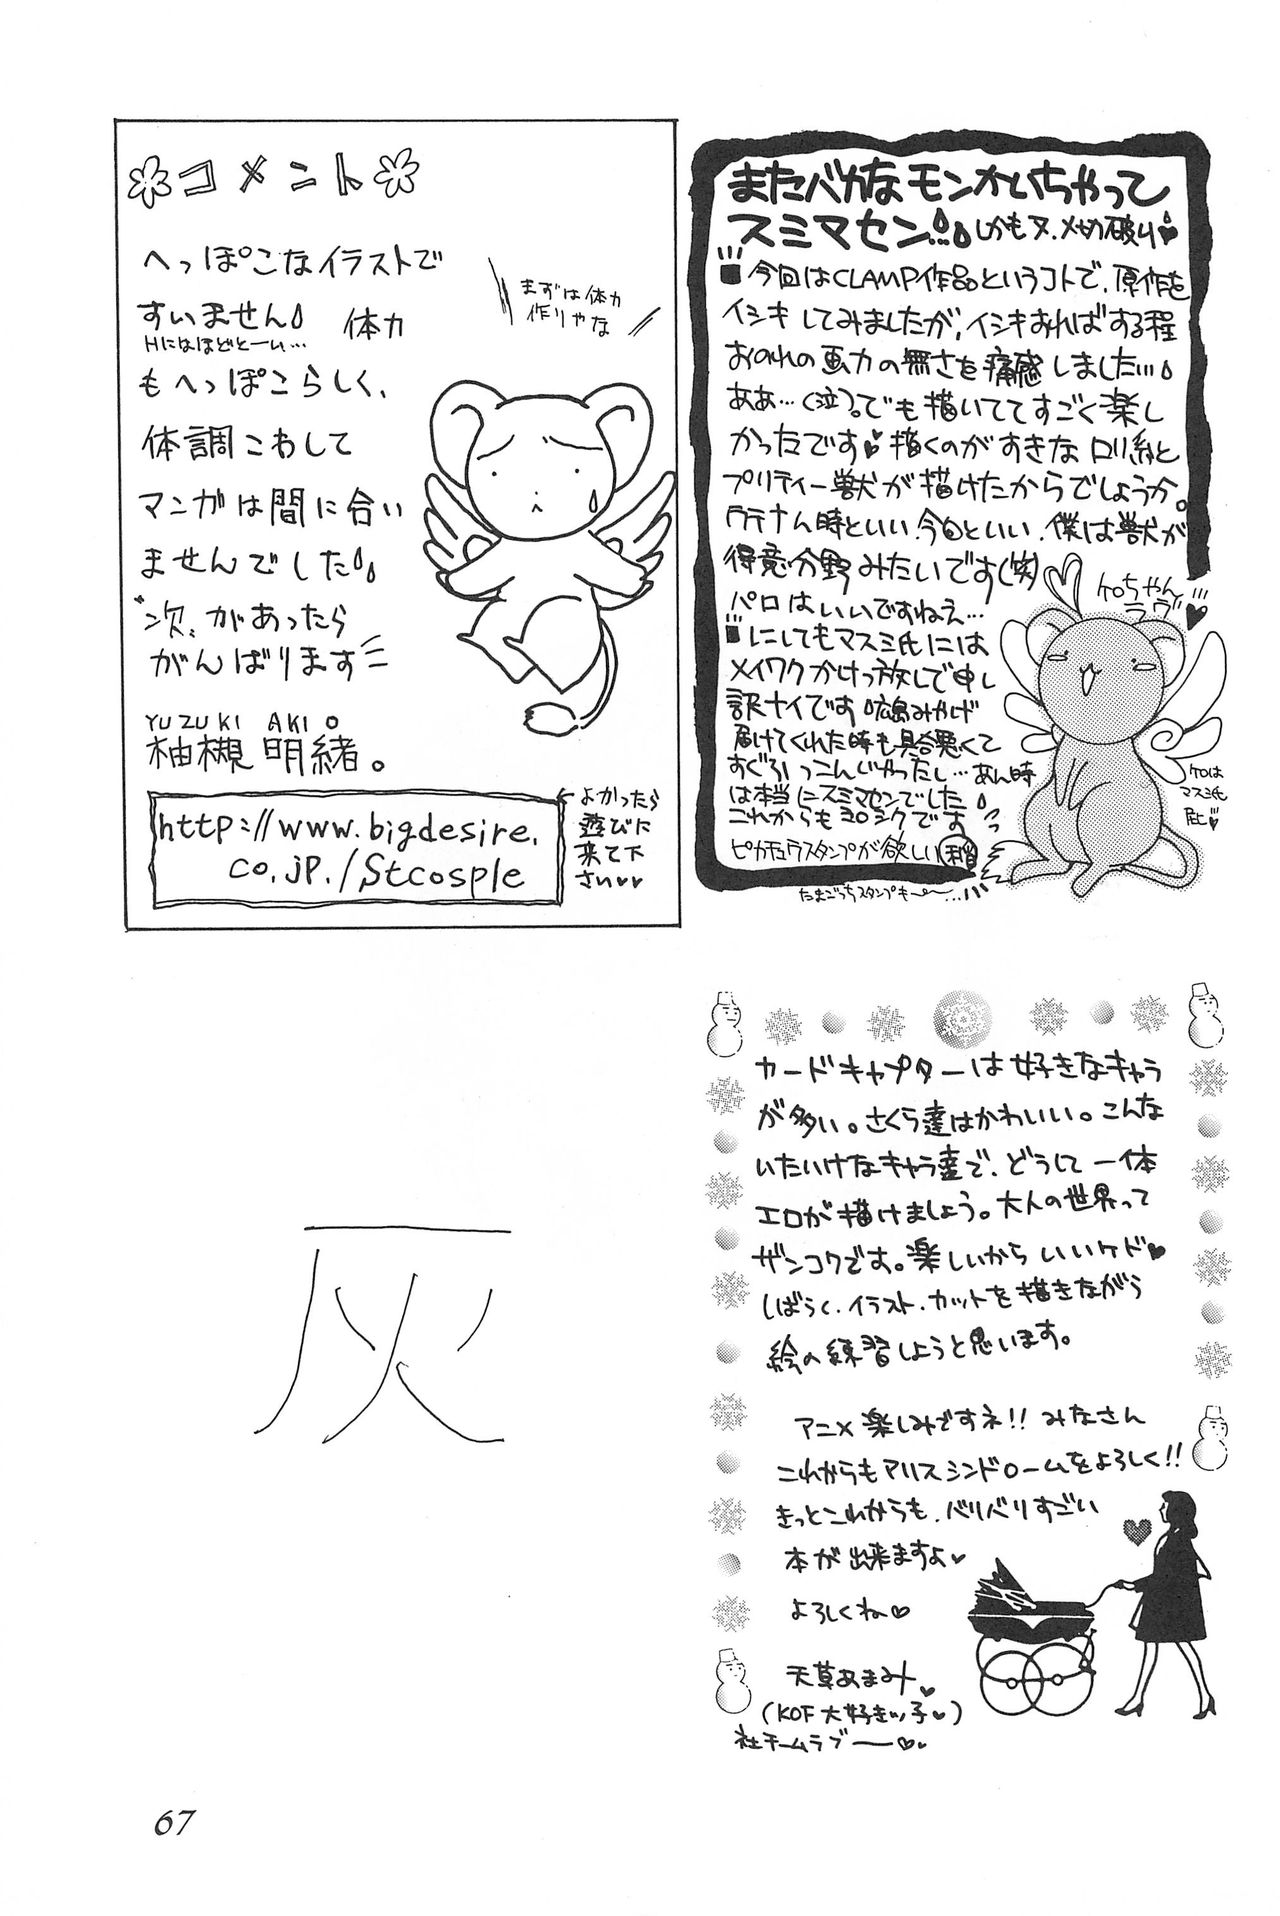 コメント
へっぽこなイラストで
すいません
体力
Hにはほどとーい…
もへっぽこらしく、
体調こわして
マンガは間に合い
ませんでした
次、があったら
がんばります
まずは体力
作りやな
YUZUKI AKI
柚槻 明緒。
http://www.bigdesire.
co.jp./Stcosple
よかったら
遊びに
来て下
さい
またバカなモンかいちゃって
スミマセン しかもヌ、〆切破り
今回はCLAMP作品というコトで、原作を
イシキしてみましたが、イシキすればする程
おのれの画力の無さを痛感しました…
ああ…(泣)。でも描いててすごく楽し
かったです 描くのがすきなロリ絵と
プリティー獣が描けたからでしょうか。
ウテナん時といい、今回といい、僕は獣が
得意分野みたいです(笑)
パロはいいですねえ…
にしてもマスミ氏には
メイワクかけっ放しで申し
訳ナイです 広島みやげ
届けてくれた時も具合悪くて
すぐふっこんじゃったし…あん時
は本当にスミマセンでした
これからもヨロシクです
ピカチュウスタンプが欲しい
たまごっちスタンプも〜〜…
ケロちゃん
ラヴ
ケロは
マスミ氏
カードキャプターは好きなキャラ
が多い。さくら達はかわいい。こんな
いたいけなキャラ達で、どうして一体
エロが描けましょう。大人の世界って
ザンコクです。楽しいからいいケド
しばらく、イラスト・カットを描きながら
絵の練習しようと思います。
アニメ楽しみですネ!! みなさん
これからもアリスシンドロームをよろしく!!
きっとこれからも、バリバリすごい
本が出来ますよ
よろしくね
天草あまみ
(KOF大好きッ子)
社チームラブ——
灰
67